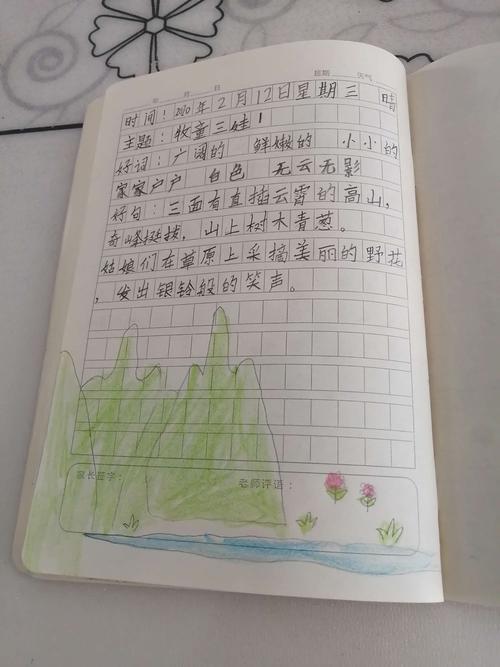 年 月 日 星期 天气
时间：2020年2月12日星期三 晴
主题：牧童三娃！
好词：广阔的 鲜嫩的 小小的
家家户户 白色 无云无影
好句：三面有直插云霄的高山，
奇峰挺拔，山上树木青葱。
姑娘们在草原上采摘美丽的野花
，发出银铃般的笑声。
家长签字： 老师评语：